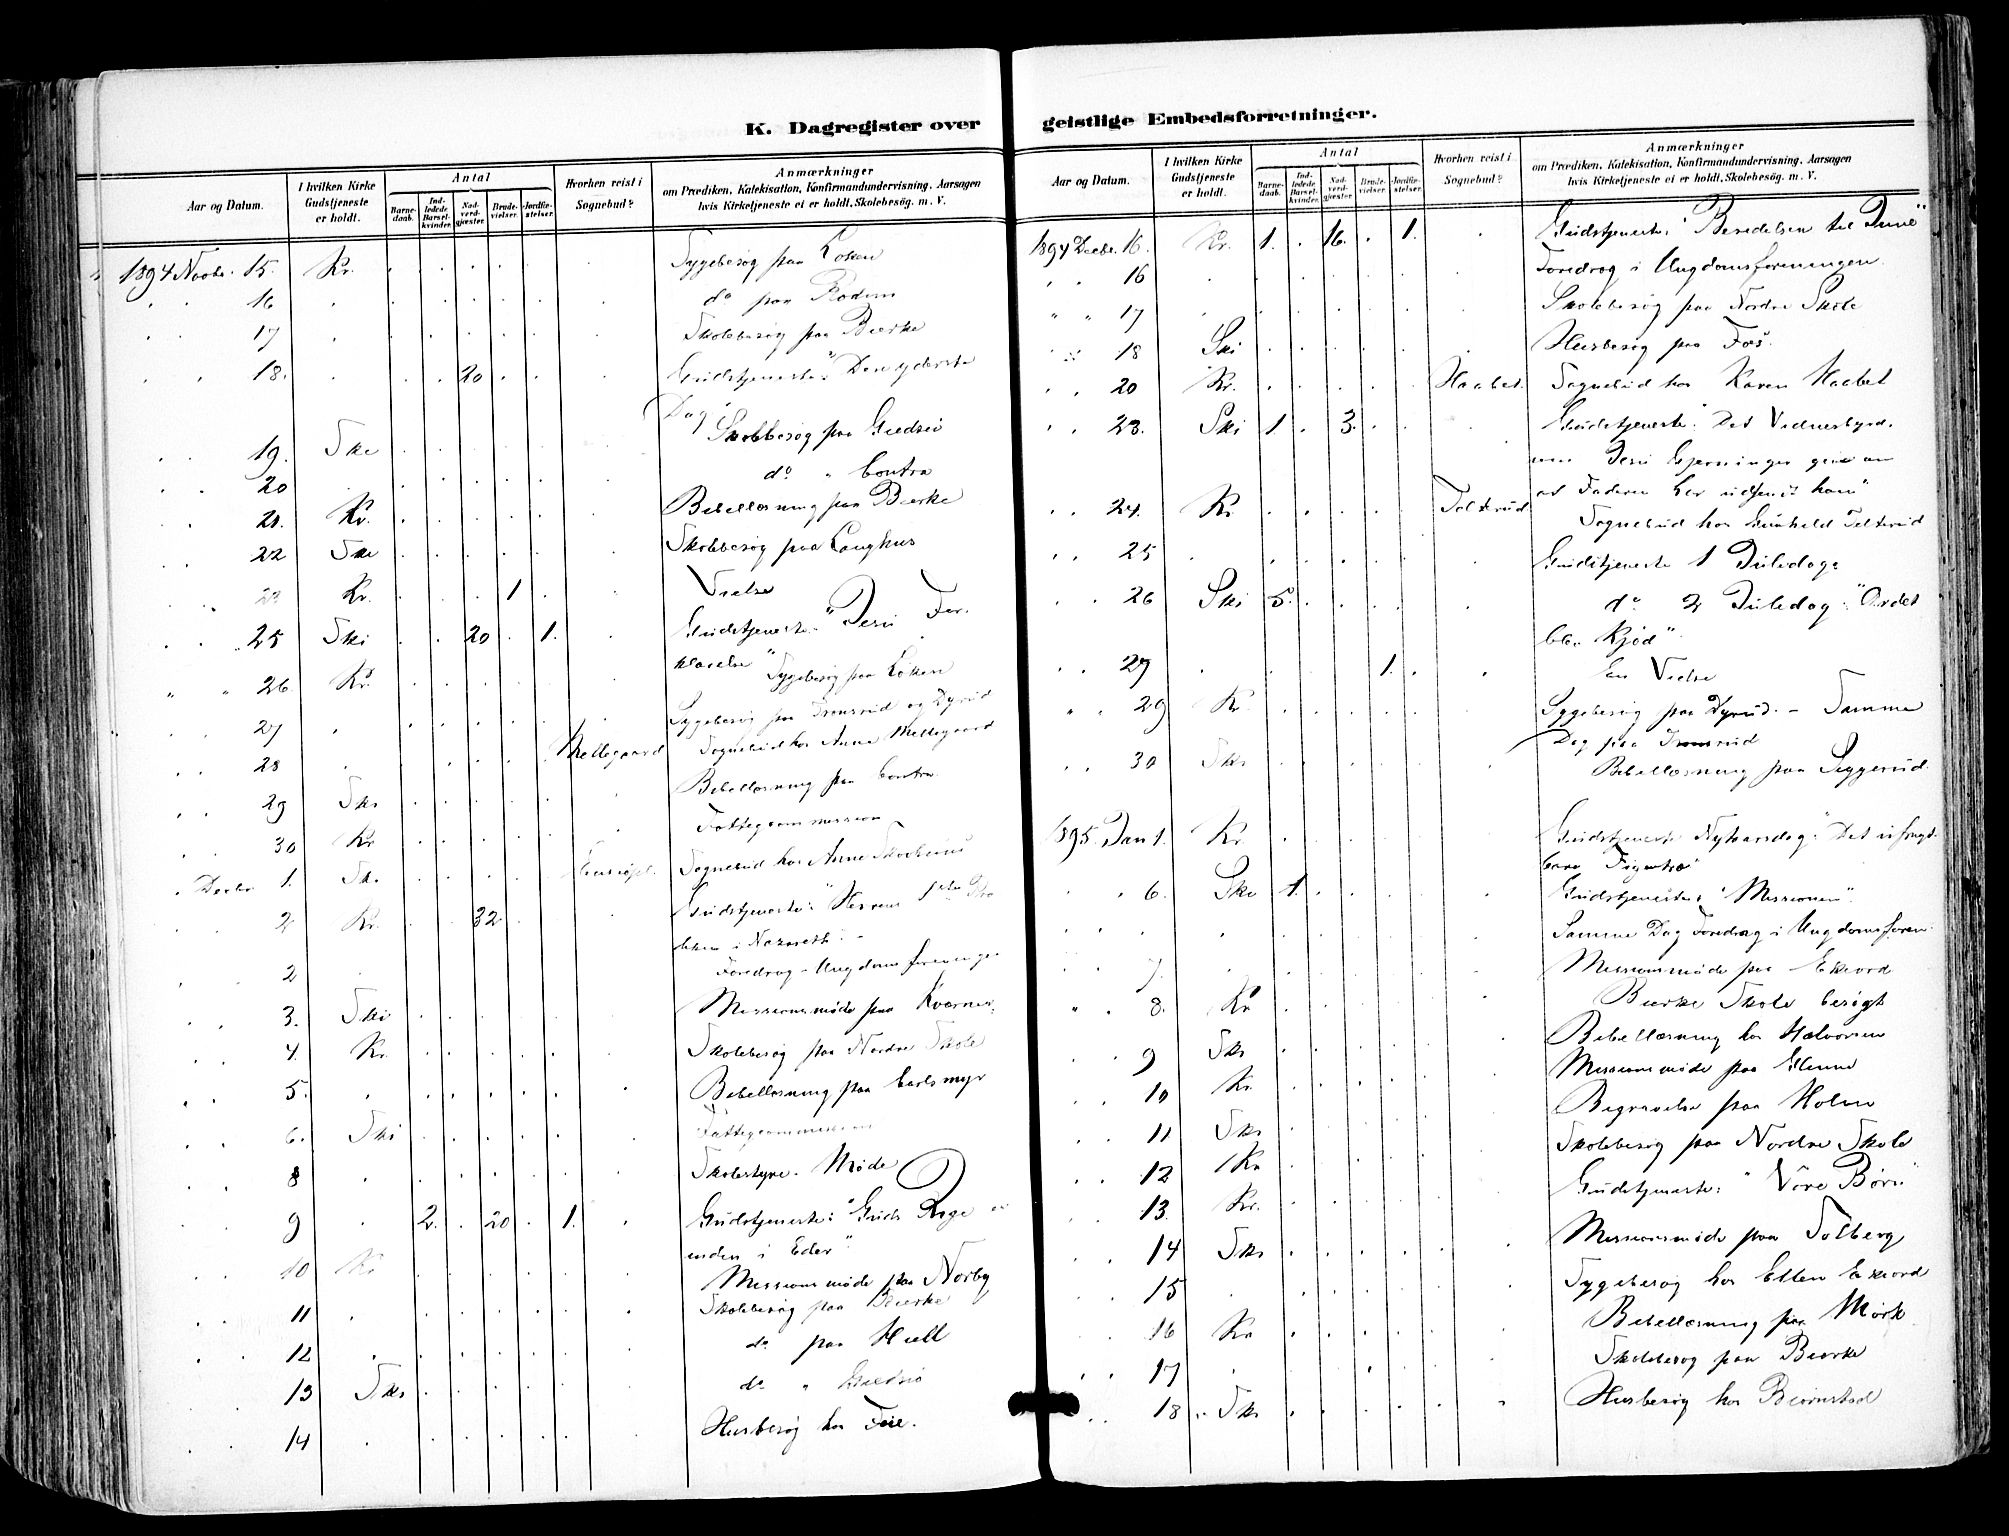 K. Dagregister over geistlige Embedsforretninger.
Aar og Datum.
I hvilken Kirke Gudstjeneste er holdt.
Antal
Barnedaab.
Indledede Barselkvinder.
Nadverdgjester.
Brudevielser.
Jordfæstelser.
Hvorhen reist i Sognebud?
Anmærkninger
om Prædiken, Katekisation, Konfirmandundervisning. Aarsagen
hvis Kirketjeneste ei er holdt. Skolebesøg. m. V.
1894 Novbr. 15. Kr. Sygebesøg paa Løken
16 do paa Rodum
17 Skolebesøg paa Bierke
18. 20 Gudstjeneste: "Den yderste
Dag"
19. Ski Skolebesøg paa Gredsio
20 do " Contra
21. Kr. Bibellæsning paa Bierke
22 Ski Skolebesøg paa Langhus
23 Kr. 1 Vielse
25 Ski 20 1. Gudstjeneste: "Jesu For-
klarelse"
26. Kr. Sygebesøg paa Løken
27 Sygebesøg paa Tronsrud og Dyrud
28 Mellegaard Sognebud hos Anne Mellegaard
29 Ski Bibellæsning paa Contra
30 Kr Fattigcommission
Decbr 1. Ski Sognebud hos Anne
2 Kr. 32 Gudstjeneste: "Herrens
i Nazareth".
2 Foredrag i Ungdomsforeningen
3. Ski Missionsmøde paa Kværner
4. Kr. Skolebesøg paa Nordre Skole
5. Bibellæsning paa Carlsmyr
6. Ski Fattigcommission
8 Skolestyre. Møde
9 2. 20 1. Gudstjeneste: "Guds Rige er
inden i Eder".
10 Kr Missionsmøde paa Norby
11 Skolebesøg paa Bierke
12 do paa Hiell
13 Ski do " Gredsio
14 Husbesøg hos Feie.
Aar og Datum.
I hvilken Kirke Gudstjeneste er holdt.
Antal
Barnedaab.
Indledede Barselkvinder.
Nadverdgjester.
Brudevielser.
Jordfæstelser.
Hvorhen reist i Sognebud?
Anmærkninger
om Prædiken, Katekisation, Konfirmandundervisning. Aarsagen
hvis Kirketjeneste ei er holdt. Skolebesøg. m. V.
1894 Decbr. 16. Kr. 1. 16. 1. Gudstjeneste: "Beredelsen til
16 Foredrag i Ungdomsforeningen.
17 Skolebesøg paa Nordre Skole
18 Ski Husbesøg paa Fos.
20 Kr. Haabet. Sognebud hos Karen Haabet
23. Ski 1. 3. Gudstjeneste: "Det Vidnesbyrd,
som Jesu Gjerninger give om
at Faderen har udsendt ham"
24. Kr Tolterud Sognebud hos Gunhild Tolterud
25 Gudstjeneste 1 Juledag
26 Ski 5. do 2 Juledag: "Ordet
blev Kjød".
27 1. En Vielse
29 Kr. Sygebesøg paa Dyrud. – Samme
Dag paa Tronsrud
30 Ski Bibellæsning paa Siggerud.
1895. Jan 1. Kr. Gudstjeneste Nytaarsdag: "Det ufrugt-
bare Figentræ"
6. Ski 1. Gudstjeneste: "Missionen".
Samme Dag Foredrag i Ungdomsforen.
7. Missionsmøde paa Ekeord
8. Kr Bierke Skole besøgt
9 Ski Bibellæsning hos Halvorsen
10 Kr Missionsmøde paa Glenne
11 Ski Begravelse paa Holm
12 Kr Skolebesøg paa Nordre Skole
13. Kr. Gudstjeneste: "Vore Børn"
14 Ski Missionsmøde paa Solberg
15 Sygebesøg hos Ellen Ekeord
16 Kr Bibellæsning paa Mørk
17 Skolebesøg paa Bierke
18 Ski Husbesøg hos Biørnstad